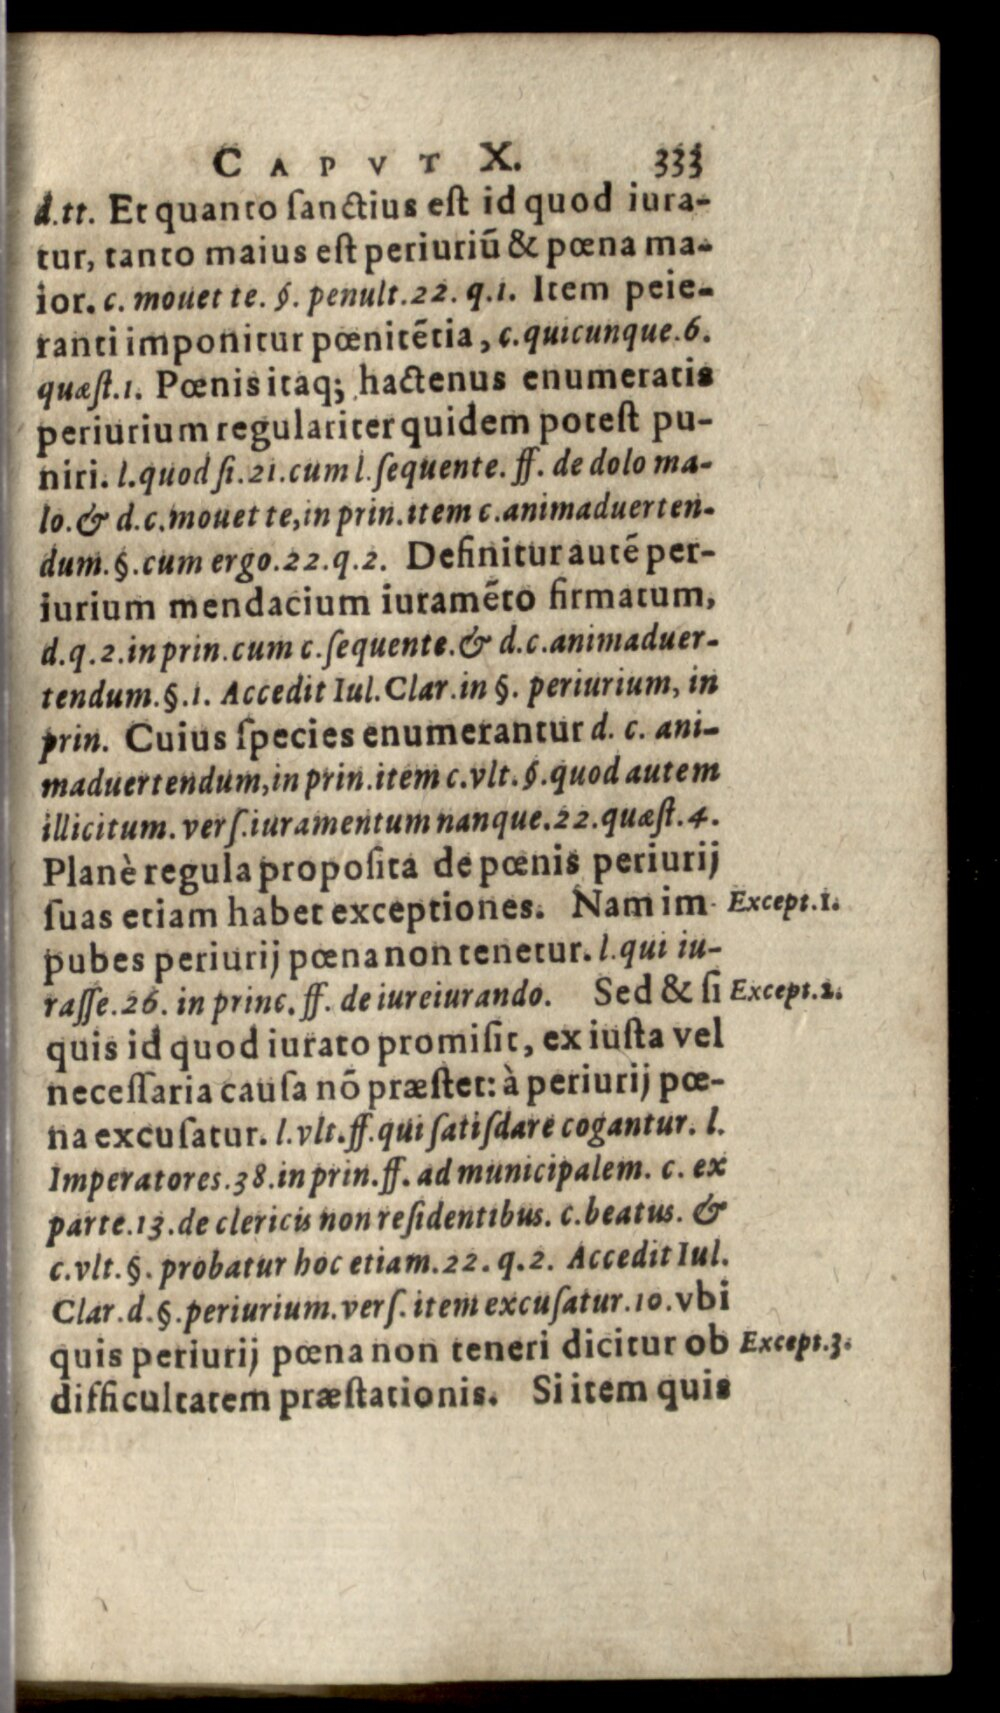 CAPVT X. 333
d.tt. Et quanto ſanctius eſt id quod iura-
tur, tanto maius eſt periuriũ & pœna ma-
ior. c. mouet te. §. penult. 22. q.1. Item peie-
ranti imponitur pœnitẽtia, c. quicunque. 6.
quæſt.1. Pœnis itaq; hactenus enumeratis
periurium regulariter quidem poteſt pu-
niri. l. quod ſi. 21. cum l. ſequente. ff. de dolo ma-
lo. & d. c. mouet te, in prin. item c. animaduerten-
dum. §. cum ergo. 22. q. 2. Definitur autẽ per-
iurium mendacium iuramẽto firmatum,
d. q. 2. in prin. cum c. ſequente. & d. c. animaduer-
tendum. §. 1. Accedit Iul. Clar. in §. periurium, in
prin. Cuius ſpecies enumerantur d. c. ani-
maduertendum, in prin. item c. vlt. §. quod autem
illicitum. verſ. iuramentum nanque. 22. quæſt. 4.
Planè regula propoſita de pœnis periurij
ſuas etiam habet exceptiones. Nam im- Except. 1.
pubes periurij pœna non tenetur. l. qui iu-
raſſe. 26. in princ. ff. de iureiurando. Sed & ſi Except. 2.
quis id quod iurato promiſit, ex iuſta vel
neceſſaria cauſa nõ præſtet: à periurij pœ-
na excuſatur. l. vlt. ff. qui ſatiſdare cogantur. l.
Imperatores. 38. in prin. ff. ad municipalem. c. ex
parte. 13. de clericis non reſidentibus. c. beatus. &
c. vlt. §. probatur hoc etiam. 22. q. 2. Accedit Iul.
Clar. d. §. periurium. verſ. item excuſatur. 10. vbi
quis periurij pœna non teneri dicitur ob Except. 3.
difficultatem præſtationis. Si item quis